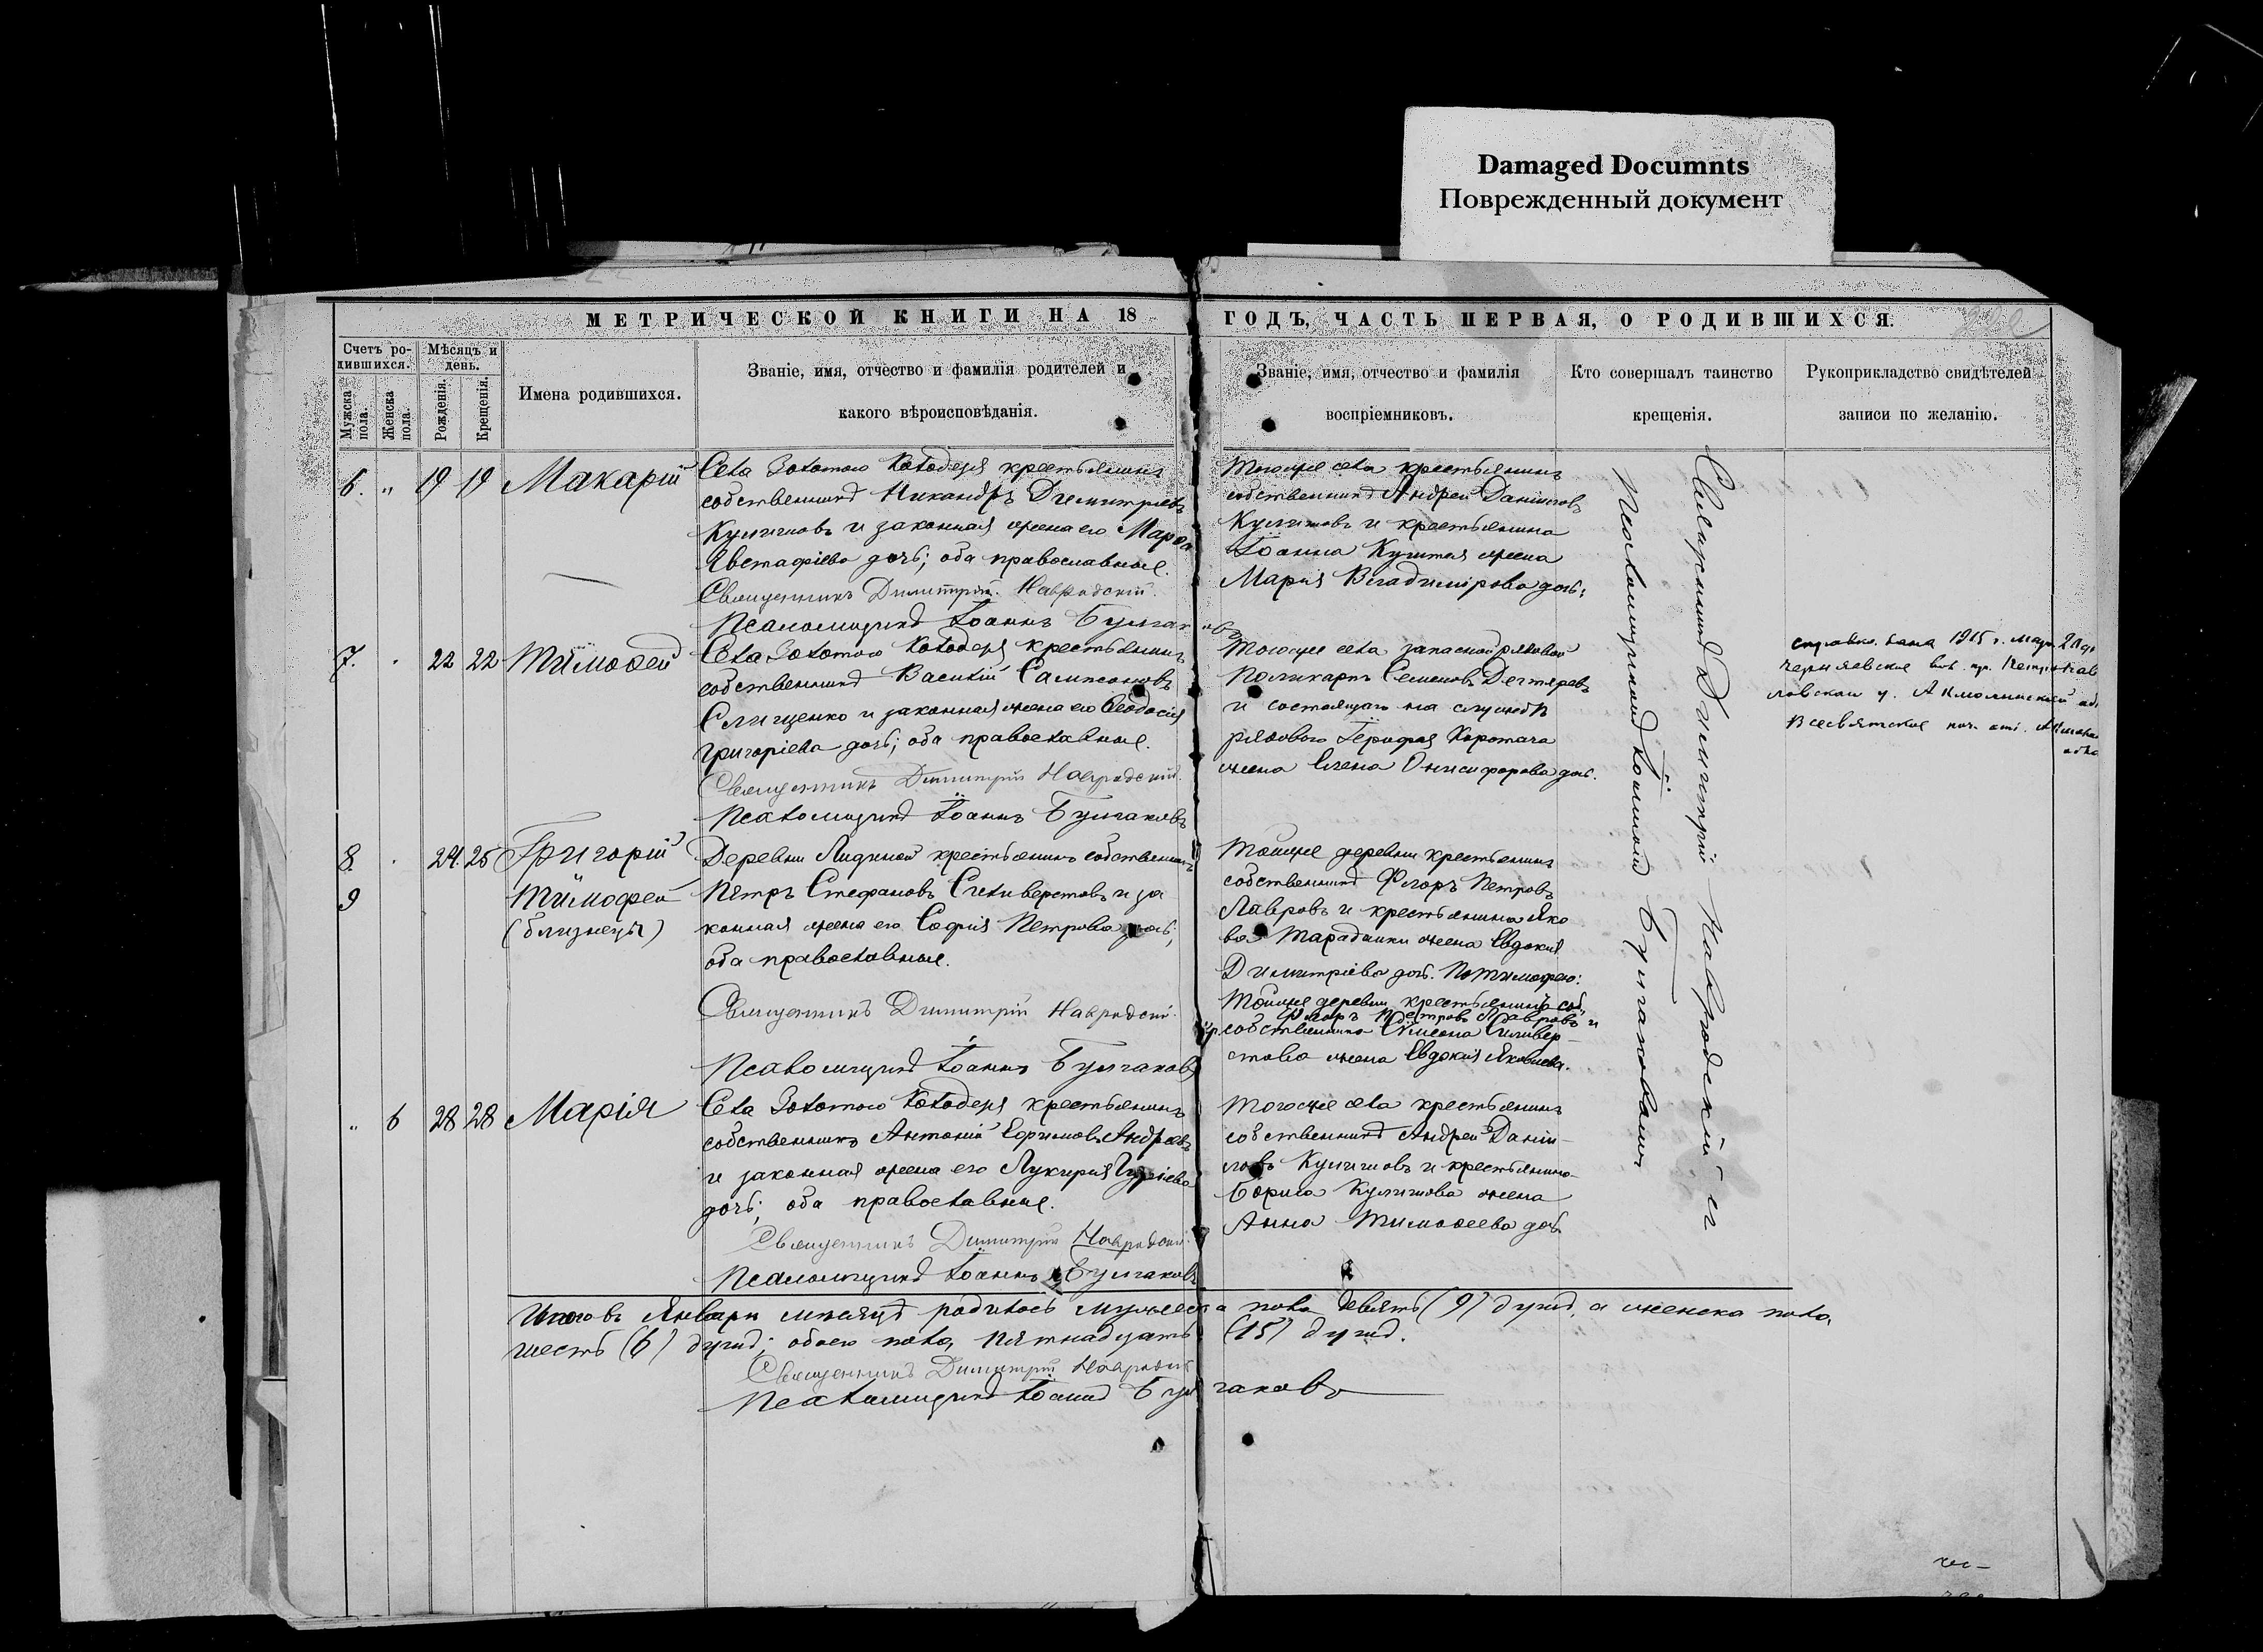 Damaged Documnts
Поврежденный документ
МЕТРИЧЕСКОЙ КНИГИ НА 18 ГОДЪ, ЧАСТЬ ПЕРВАЯ, О РОДИВШИХСЯ.
Счетъ ро-
дившихся.
Мѣсяцъ и
день.
Мужска
пола.
Женска
пола.
Рожденія.
Крещенія.
Имена родившихся.
Званіе, имя, отчество и фамилія родителей и
какого вѣроисповѣданія.
Званіе, имя, отчество и фамилія
воспріемниковъ.
Кто совершалъ таинство
крещенія.
Рукоприкладство свидѣтелей
записи по желанію.
6. " 19 19 Макарій
Села Золотого Колодезя крестьянинъ
собственникъ Никандръ Димитріевъ
и законная жена его Марѳа
Явстафіева дочь; оба православные.
Священникъ Димитрій Навродскій.
Псаломщикъ Іоаннъ Булгаковъ
Тогоже села крестьянинъ
собственникъ Андрей Даніиловъ
и крестьянина
Іоанна жена
Марія Владимірова дочь.
7. 22 22 Тимоѳей
Села Золотого Колодезя крестьянинъ
собственникъ Василій Сампсоновъ
и законная жена его Ѳеодосія
Григоріева дочь; оба православные.
Священникъ Димитрій Навродскій.
Псаломщикъ Іоаннъ Булгаковъ
Тогоже села запасной рядовой
Поликарпъ Семеновъ Дегтяревъ
и состоящаго на службѣ
рядового Коротача
жена Елена Онисифорова дочь.
1915 г.
8. 24 25 Григорій
9 Тимофей
(близнецы)
Деревни крестьянинъ собственникъ
Петръ Стефановъ Силиверстовъ и за
конная жена его Софія Петрова дочь;
оба православные.
Священникъ Димитрій Навродскій.
Псаломщикъ Іоаннъ Булгаковъ
Тойже деревни крестьянинъ
собственникъ Флоръ Петровъ
Лавровъ и крестьянина Яко
ва Тараданки жена Евдокія
Димитріева дочь. По Тимофею:
Тойже деревни крестьянинъ соб.
Флоръ Петровъ Лавровъ и
кр. собственника Симеона Силивер-
стова жена Евдокія Яковлева.
" 6 28 28 Марія
Села Золотого Колодезя крестьянинъ
собственникъ Антоній Ефимовъ Андреевъ
и законная жена его Лукерія
дочь; оба православные.
Священникъ Димитрій Навродскій.
Псаломщикъ Іоаннъ Булгаковъ
Тогоже села крестьянинъ
собственникъ Андрей Даніи-
ловъ и крестьянина
Бориса жена
Анна Тимоѳеева дочь
Священникъ Димитрій Навродскій съ
Псаломщикомъ Іоанномъ Булгаковымъ
Итого въ Январѣ мѣсяцѣ родилось мужеска пола девять (9) душъ, а женска пола,
шесть (6) душъ; обоего пола, пятнадцать (15) душъ.
Священникъ Димитрій Навродскій
Псаломщикъ Іоаннъ Булгаковъ